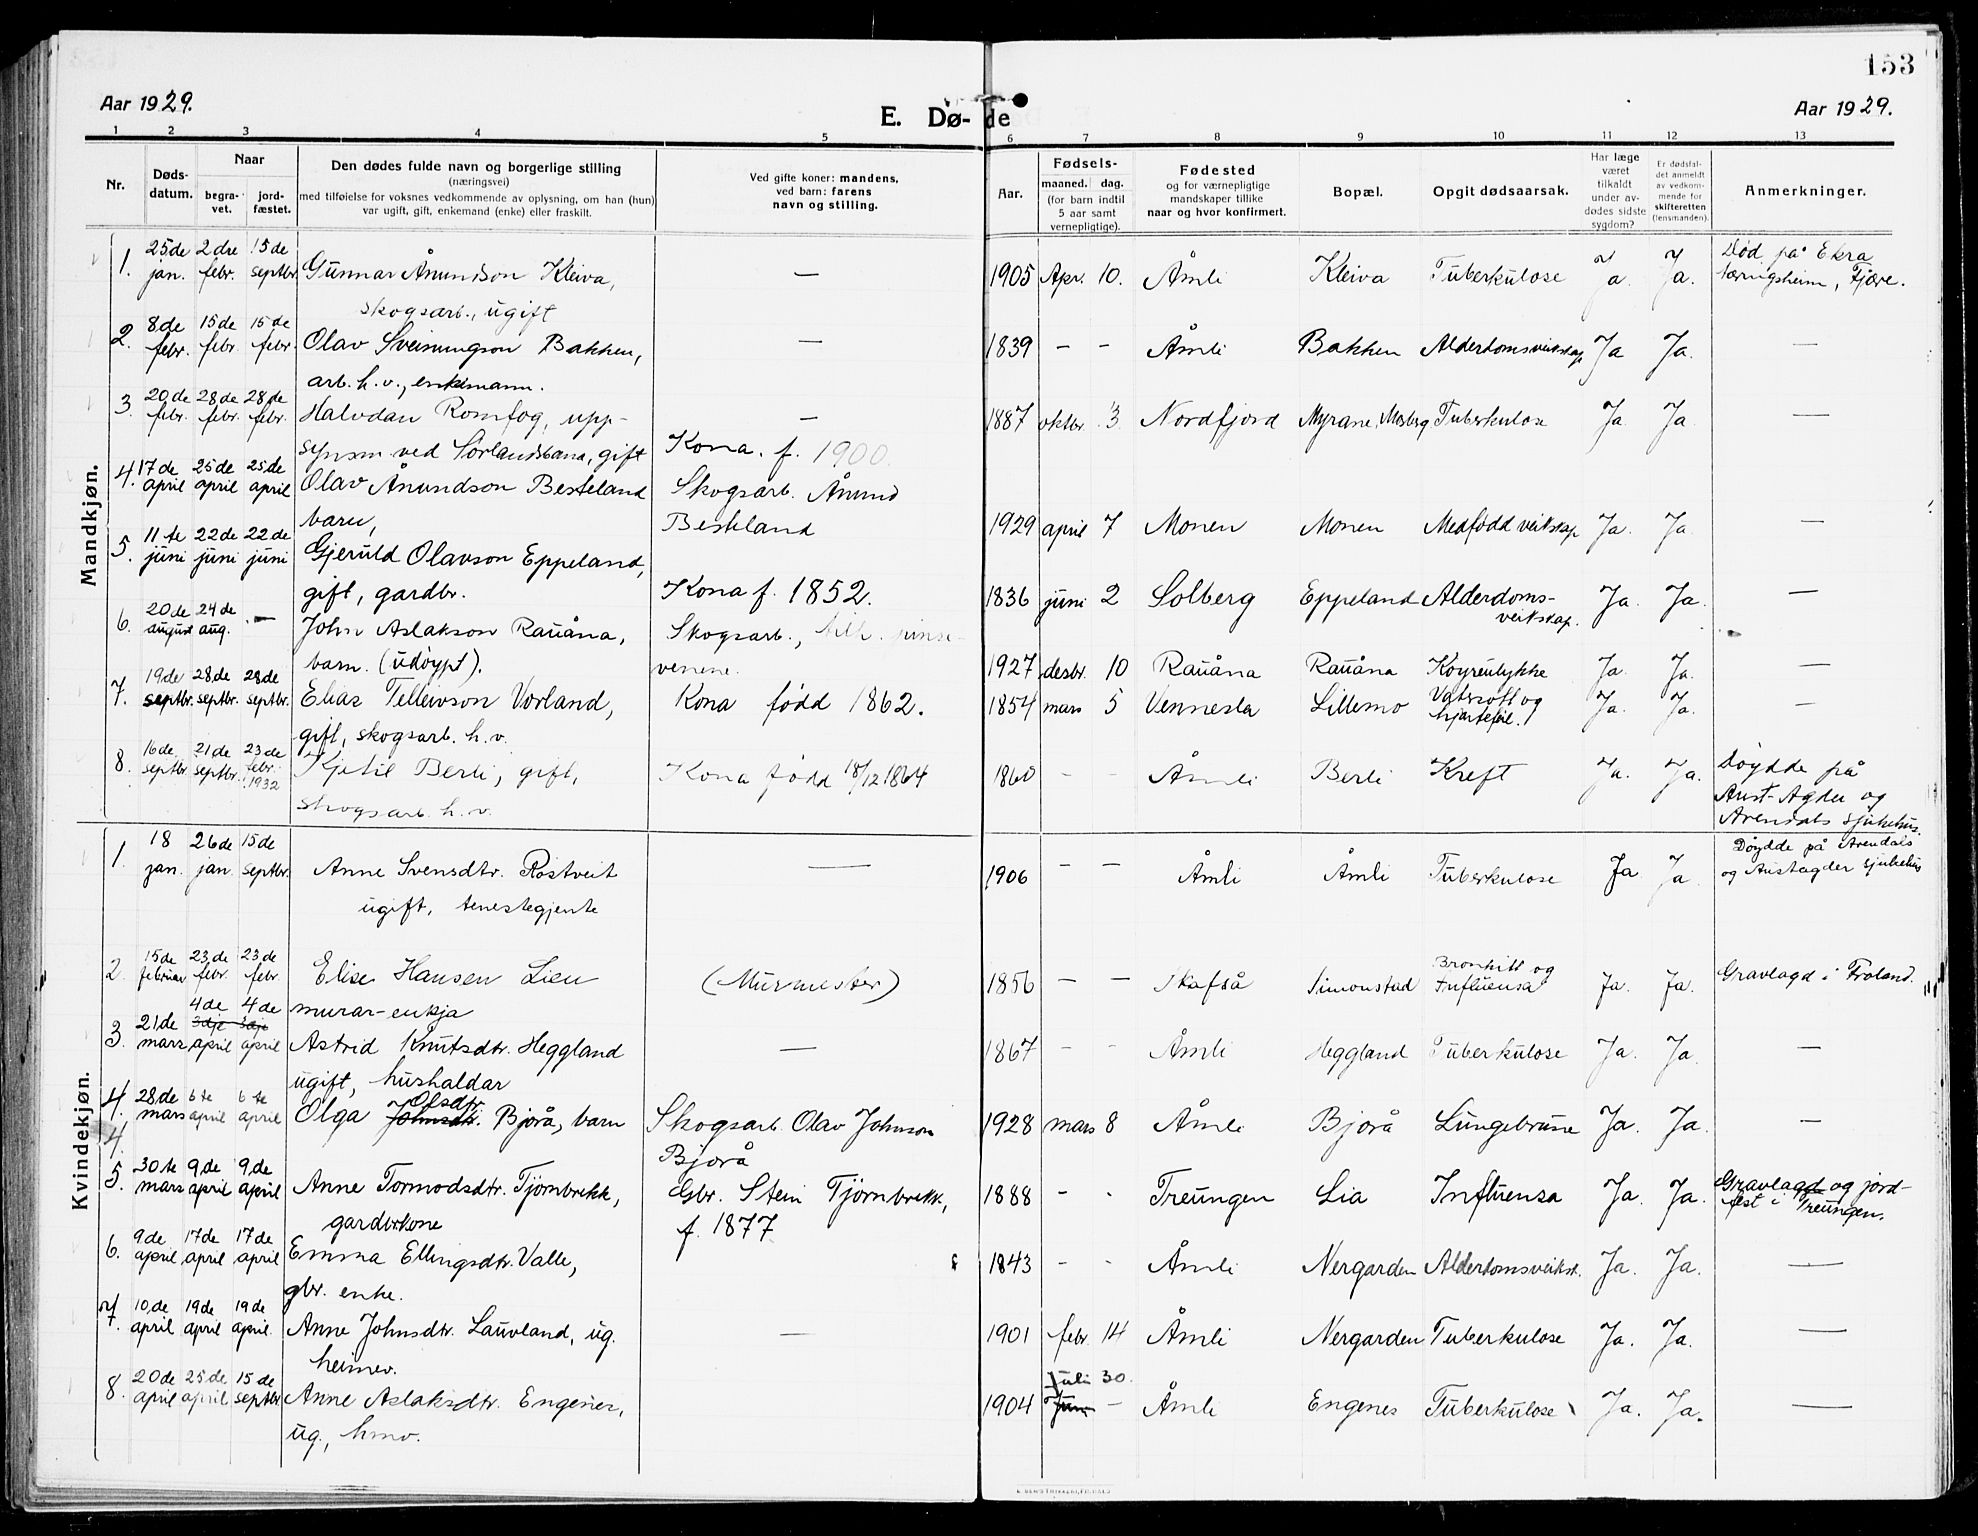 153
Aar 1929.
E. Dø- de
Aar 1929.
1 2 3 4 5 6 7 8 9 10 11 12 13
Nr.
Døds-
datum.
Naar
begra-
vet.
jord-
fæstet.
Den dødes fulde navn og borgerlige stilling
(næringsvei)
med tilføielse for voksnes vedkommende av oplysning, om han (hun)
var ugift, gift, enkemand (enke) eller fraskilt.
Ved gifte koner: mandens,
ved barn: farens
navn og stilling.
Aar.
Fødsels-
maaned. dag.
(for barn indtil
5 aar samt
vernepligtige).
Fødested
og for værnepligtige
mandskaper tillike
naar og hvor konfirmert.
Bopæl.
Opgit dødsaarsak.
Har læge
været
tilkaldt
under av-
dødes sidste
sygdom?
Er dødsfal-
det anmeldt
av vedkom-
mende for
skifteretten
(lensmanden).
Anmerkninger.
Mandkjøn.
1. 25de jan. 2dre febr. 15de septbr. Gunnar Ånundson Kleiva, — 1905 Apr. 10. Åmli Kleiva Tuberkulose Ja. Ja. Død på Ekra
skogsarb., ugift Næringsheim, Fjære.
2. 8de febr. 15de febr. 15de febr. Olav Sveinungson Bakken, — 1839 - - Åmli Bakken Alderdomsveikskap Ja Ja. —
arb. h. v., enkemann.
3. 20de febr. 28de febr. 28de febr. Halvdan Romfog, upp- — 1887 oktbr. 3 Nordfjord Myrane, Mosberg Tuberkulose Ja. Ja. —
synsm. ved Sørlandsbana, gift Kona. f. 1900.
4. 17de april 25de april 25de april Olav Ånundson Besteland Skogsarb. Ånund
barn, Besteland 1929 april 7 Monen Monen Medfødd veikskap Ja. Ja. —
5. 11te juni 22de juni 22de juni Gjeruld Olavson Eppeland,
gift, gardbr. Kona f. 1852. 1836 juni 2 Solberg Eppeland Alderdoms-
veikskap. Ja. Ja. —
6. 20de august 24de aug. — John Aslakson Rauåna, Skogsarb., tilh. pinse-
barn. (udøypt). venene. 1927 desbr. 10 Rauåna Rauåna Køyreulykke Ja. Ja. —
7. 19de septbr. 28de septbr. 28de septbr. Elias Tellevson Vorland, Kona fødd 1862. 1854 mars 5 Vennesla Lillemo Vatersott og
hjartefeil. Ja. Ja. —
gift, skogsarb. h. v.
8. 16de septbr. 21de septbr. 23de febr. 1932 Kjetil Berli, gift, Kona fødd 18/12 1864 1860 - - Åmli Berli Kreft Ja. Ja. Døydde på
skogsarb. h. v. Aust-Agder og
Arendals sjukehus.
Kvindekjøn.
1. 18 jan. 26de jan. 15de septbr. Anne Svensdtr. Rostveit — 1906 - - Åmli Åmli Tuberkulose Ja Ja Døydde på Arendals
ugift, tenestegjente og Austagder sjukehus
2. 15de februar 23de febr. 23de febr. Elise Hansen Lien (Murmester) 1856 - - Skafså Simonstad Bronkitt og
Influensa Ja. Ja. Gravlagd i Froland.
murar-enkja
3. 21de mars 4de 3dje april 4de 3dje april Astrid Knutsdtr. Heggland — 1867 - - Åmli Heggland Tuberkulose Ja. Ja. —
ugift, hushaldar
4. 28de mars 6te april 6te april Olga Johnsdtr. Olsdtr. Bjorå, barn Skogsarb. Olav Johnson 1928 mars 8 Åmli Bjorå Lungebrune Ja. Ja. —
4. Bjorå
5. 30te mars 9de april 9de april Anne Tormodsdtr. Tjörnbrekk, Gbr. Stein Tjörnbrekk, 1888 - - Treungen Lia Influensa Ja. Ja. Gravlagd og jord-
fest i Treungen.
gardbrkone f. 1877
6. 9de april 17de april 17de april Emma Ellingsdtr. Valle, 1843 - - Åmli Nergarden Alderdomsveiksk. Ja. Ja. —
gbr. enke.
7. 10de april 19de april 19de april. Anne Johnsdtr. Lauvland, ug. — 1901 febr. 14 Åmli Nergarden Tuberkulose Ja. Ja. —
heimev.
8. 20de april 25de april 15de septbr. Anne Aslaksdtr. Engenes, 1904 Juli 30. Juni - Åmli Engenes Tuberkulose Ja. Ja. —
ug., hmv.